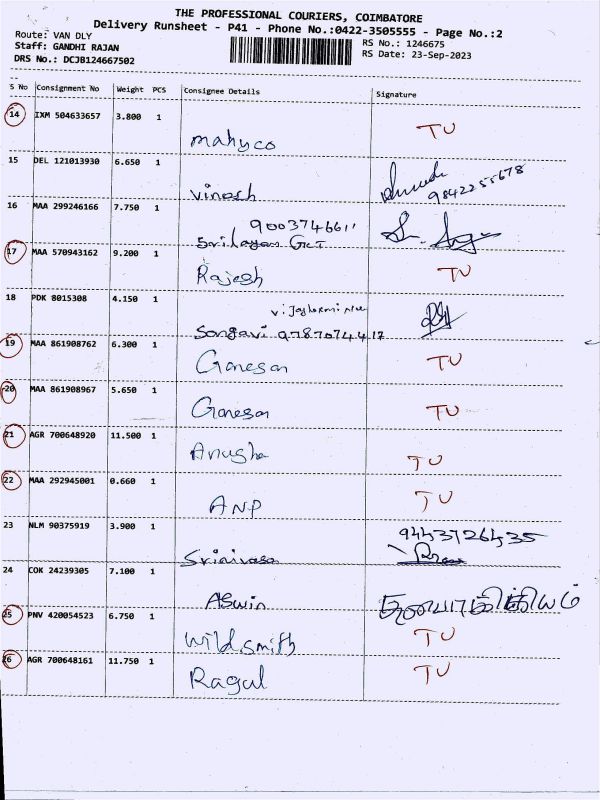 THE PROFESSIONAL COURIERS, COIMBATORE
Delivery Runsheet - P41 - Phone No.:0422-3505555 - Page No.:2
Route: VAN DLY
Staff: GANDHI RAJAN
DRS No.: DCJB124667502
RS No.: 1246675
RS Date: 23-Sep-2023
S No Consignment No Weight PCS Consignee Details Signature
14 IXM 504633657 3.800 1 mahyco TU
15 DEL 121013930 6.650 1 vinesh 9842255678
16 MAA 299246166 7.750 1 9003746611
17 MAA 570943162 9.200 1 Rajesh TU
18 PDK 8015308 4.150 1
Sangavi 9787074417
19 MAA 861908762 6.300 1 Ganesan TU
20 MAA 861908967 5.650 1 Ganesan TU
21 AGR 700648920 11.500 1 Anusha TU
22 MAA 292945001 0.660 1 ANP TU
23 NLM 90375919 3.900 1 Srinivasa 9443726435
24 COK 24239305 7.100 1 Aswin
25 PNV 420054523 6.750 1 wildsmith TU
26 AGR 700648161 11.750 1 Ragul TU